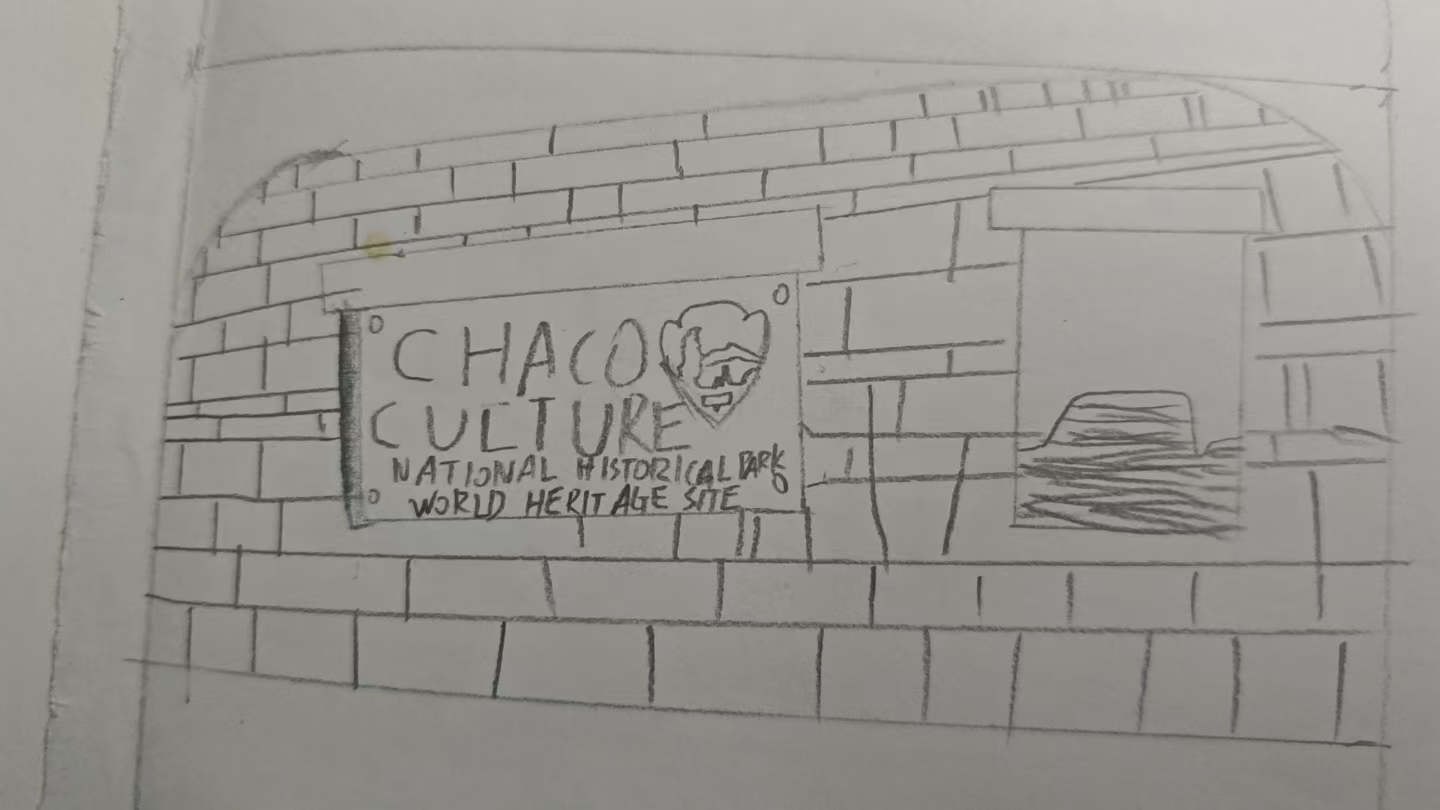 CHACO
CULTURE
NATIONAL HISTORICAL PARK
WORLD HERITAGE SITE